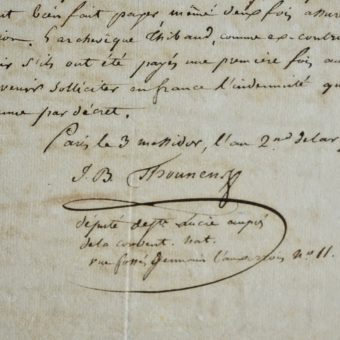 nt bien fait payer même deux fois assure
ion. L'archevêque Thibaud, comme ex-contre
is s'ils ont été payés une première fois au
venir solliciter en france l'indemnité qu
nne par décret.
Paris le 3 messidor, l'an 2nd de la r
J. B. Thounens
député de Ste Lucie auprès
de la convent. nat.
rue fossés Germain l'auxerrois No 11.